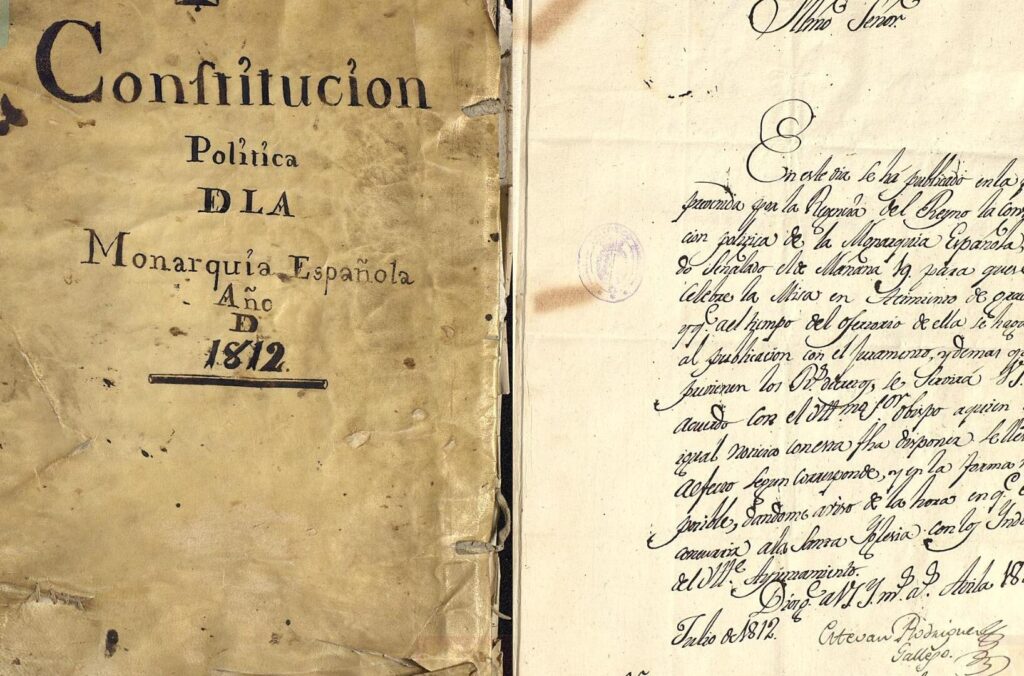 Constitucion
Politica
DLA
Monarquia Española
Año
D
1812
Illmo Señor
En este dia se ha publicado en la
por la Regencia del Reyno la
cion politica de la Monarquia Española
do Señalado el de Mañana 19 para que
Celebre la Misa en de
al tiempo del ofertorio de ella se haga
al publicacion con el Juramento, y demas
los Rs. decretos, se Servirá
acuerdo con el Illmo Sor Obispo a quien
igual noticia con esta fha disponer se lleve
Aefecto segun corresponde, y en la forma
posible, dandome aviso de la hora en q.e
a la Santa Yglesia con los
del Ill.e Ayuntamiento.
Dios gue a V.S.I. ms as. Avila 18
Julio de 1812.
Estevan Rodriguez
Gallego.